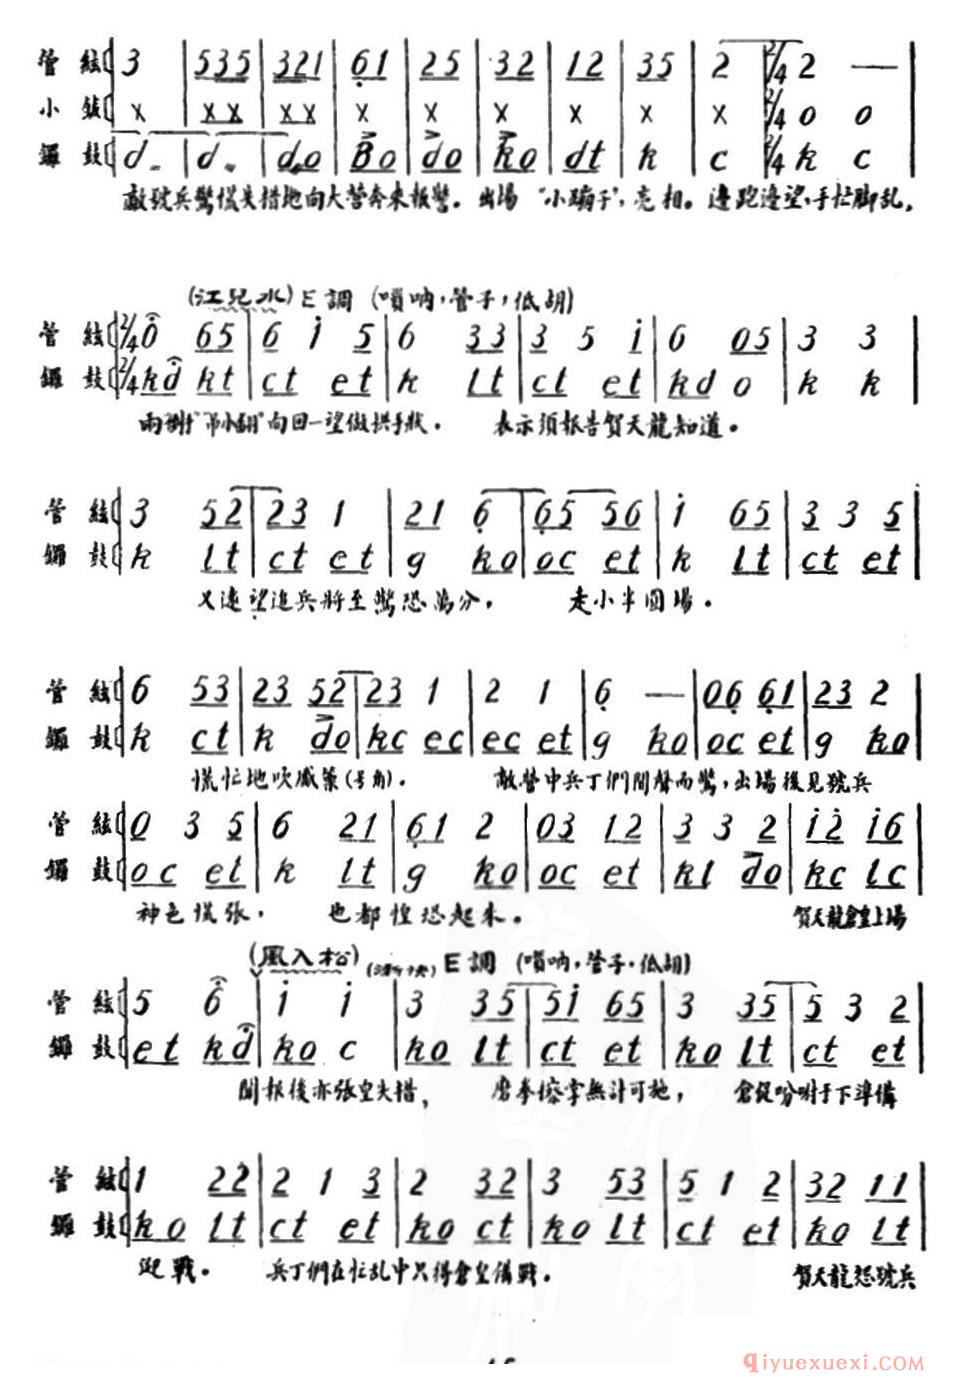 管絃 3 535 321 61 25 32 12 35 2 2/4 2 —
小鈸 x x x x x x x x x x x x 2/4 o o
鑼鼓 d. d. do Bo do ko dt k c 2/4 k c
敵號兵驚慌失措地向大營奔來報警。出場“小蹦子”,亮相。邊跑邊望,手忙脚乱,
(江兒水) E調 (嗩吶,管子,低胡)
管絃 2/4 0 65 6 i 5 6 33 3 5 i 6 05 3 3
鑼鼓 2/4 kd kt ct et k lt ct et kd o k k
向回一望做拱手狀. 表示須報告賀天龍知道.
管絃 3 52 23 1 21 6 65 56 i 65 3 3 5
鑼鼓 k lt ct et g ko oc et k lt ct et
又遠望追兵將至驚恐萬分, 走小半圓場.
管絃 6 53 23 52 23 1 2 1 6 — 06 61 23 2
鑼鼓 k ct k do kc ec ec et g ko oc et g ko
慌忙地吹(号角). 敵營中兵丁們聞聲而驚,出場後見號兵
管絃 0 3 5 6 21 61 2 03 12 3 3 2 i2 i6
鑼鼓 oc et k lt g ko oc et kl do kc lc
神色慌張, 也都惶恐起來. 賀天龍倉皇上場
(風入松) E調 (嗩吶,管子,低胡)
管絃 5 6 i i 3 35 5i 65 3 35 5 3 2
鑼鼓 et kd ko c ko lt ct et ko lt ct et
聞報後亦張皇失措, 磨拳擦掌無計可施, 倉促吩咐手下準備
管絃 1 22 2 1 3 2 32 3 53 5 1 2 32 11
鑼鼓 ko lt ct et ko ct ko lt ct et ko lt
迎戰. 兵丁們在忙乱中只得倉皇備戰. 賀天龍怒號兵
qiyuexuexi.com